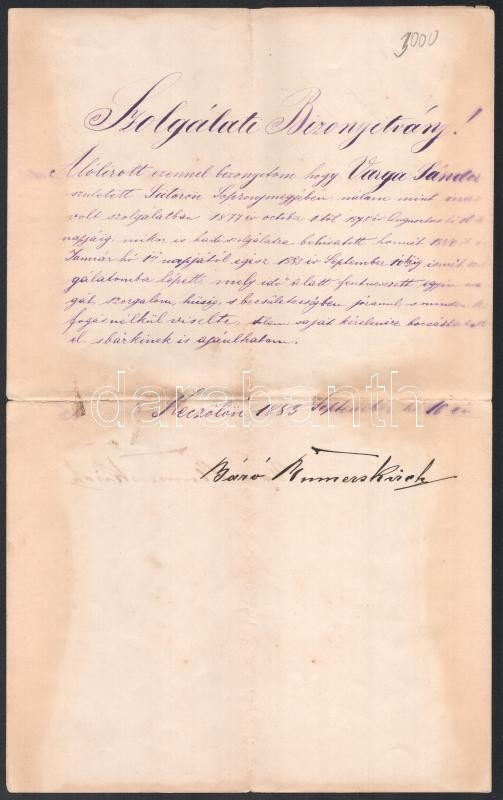 3000
Szolgálati Bizonyitvány!
Alólirott ezennel bizonyitom hogy Varga Sándor
született Sutorön Soprony megyében nálam mint
volt szolgálatban 1877 év october 1 től 1878 év Augustus hó
napjáig mikor is hadi szolgálatra behivatott honnét
Január hó 1ső napjától egész 1883 év September 10kéig ismét
gálatomba lépett, mely idő alatt fentnevezett ugyan ma-
gát, szorgalom, hüség, s becsületességben józanul s minden ki-
fogás nélkül viselte, állom saját kérelmére bocsáttatott
el, s bárkinek is ajánlhatom.
Keczölön 1883 September hó 10 én
Báró Rummerskirch
darabanth